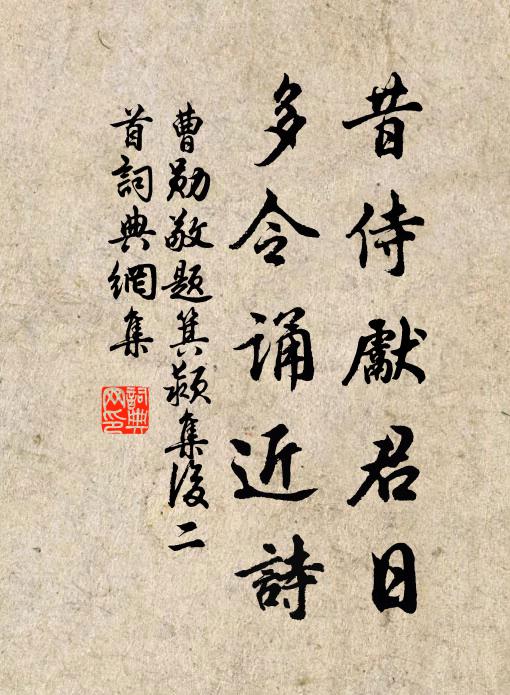 昔侍獻君日
多令誦近詩
曹勛敬題箕潁集後二
首詞典網集
詞典網印